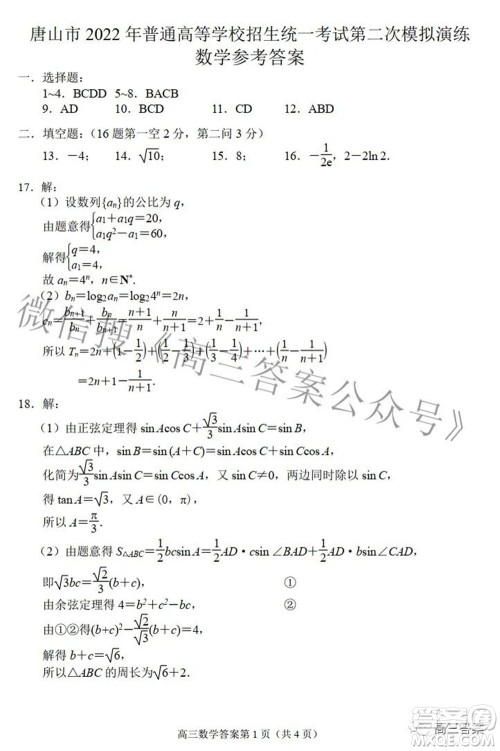 唐山市 2022 年普通高等学校招生统一考试第二次模拟演练
数学参考答案
一．选择题：
1~4．BCDD 5~8．BACB
9．AD 10．BD 11．ACD 12．ABD
二．填空题：(16 题第一空 2 分，第二问 3 分)
13．-4； 14．√10； 15． 16．-1/(2e)，2-2ln 2．
17．解：
（1）设数列{aₙ}的公比为 q，
由题意得{a₁+a₁q=20, a₁q²-a₁=60,
解得{q=4, a₁=4,
故 aₙ=4ⁿ，n∈N*.
（2）bₙ=log₂aₙ=log₂4ⁿ=2n，
cₙ=bₙ/bₙ₊₁+bₙ₊₁/bₙ=n/(n+1)+(n+1)/n=2+1/n-1/(n+1)，
所以 Tₙ=2n+(1-1/2)+(1/2-1/3)+(1/3-1/4)+…+(1/n-1/(n+1))
=2n+1-1/(n+1)．
18．解：
（1）由正弦定理得 sin Acos C+(√3/3)sin Asin C=sin B，
在△ABC 中，sin B=sin (A+C)=sin Acos C+cos Asin C，
化简为(√3/3)sin Asin C=cos Asin C，又 sin C≠0，两边同时除以 sin C，
得 tan A=√3，又 A∈(0，π)，
所以 A=π/3．
（2）由题意得 S△ABC=(1/2)bcsin A=(1/2)AD·csin ∠BAD+(1/2)AD·bsin ∠CAD，
即√3bc=(√2/3)(b+c)， ①
由余弦定理得 4=b²+c²-bc， ②
由①②得(b+c)²-(√2/√3)(b+c)=4，
解得 b+c=√6，
所以△ABC 的周长为√6+2．
高三数学答案第 1 页（共 4 页）
微信搜《高三答案公众号》
高三答案